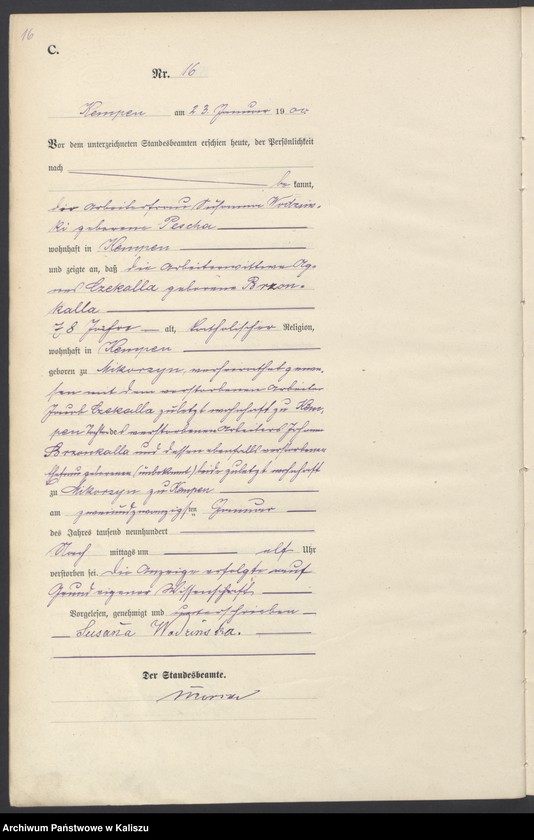 16
C.
Nr. 16
Kempen am 23. Januar 1900
Vor dem unterzeichneten Standesbeamten erschien heute, der Persönlichkeit
nach
be kannt,
der Arbeiterfrau Susanna
geborene Pescha
wohnhaft in Kempen
und zeigte an, daß die Arbeiterwittwe Ag-
nes Czekalla geborene Brzon-
kalla
78 Jahre alt, katholischer Religion,
wohnhaft in Kempen
geboren zu Mikorzyn, verheirathet gewe-
sen mit dem verstorbenen Arbeiter
Jacob Czekalla zuletzt wohnhaft zu Kem-
pen Tochter des verstorbenen Arbeiters Johann
Brzonkalla und dessen ebenfalls verstorbenen
Ehefrau geborenen (unbekannt) beide zuletzt wohnhaft
zu Mikorzyn zu Kempen
am zweiundzwanzigsten Januar
des Jahres tausend neunhundert
Nach mittags um elf Uhr
verstorben sei. Die Anzeige erfolgte auf
Grund eigener Wissenschaft.
Vorgelesen, genehmigt und unterschrieben
Susana
Der Standesbeamte.
Archiwum Państwowe w Kaliszu